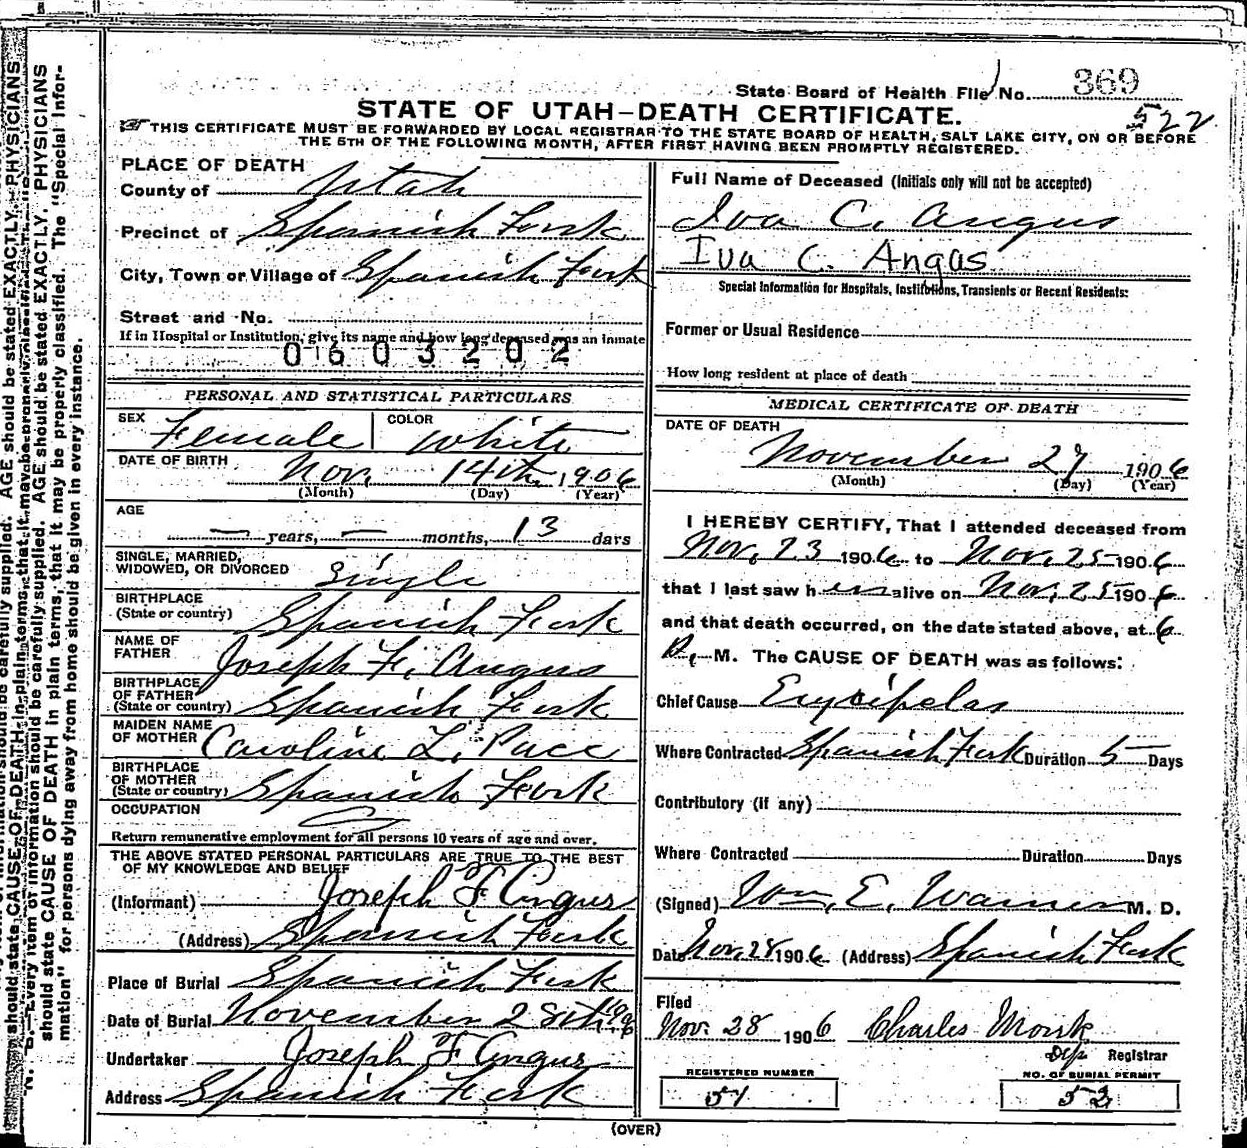 State Board of Health File No. 369
522
STATE OF UTAH—DEATH CERTIFICATE.
THIS CERTIFICATE MUST BE FORWARDED BY LOCAL REGISTRAR TO THE STATE BOARD OF HEALTH, SALT LAKE CITY, ON OR BEFORE
THE 5TH OF THE FOLLOWING MONTH, AFTER FIRST HAVING BEEN PROMPTLY REGISTERED.
PLACE OF DEATH
County of Utah
Precinct of Spanish Fork
City, Town or Village of Spanish Fork
Street and No.
If in Hospital or Institution, give its name and how long deceased was an inmate
0603202
PERSONAL AND STATISTICAL PARTICULARS
SEX Female COLOR White
DATE OF BIRTH Nov. 14th, 1906
(Month) (Day) (Year)
AGE
— years, — months, 13 days
SINGLE, MARRIED,
WIDOWED, OR DIVORCED Single
BIRTHPLACE
(State or country) Spanish Fork
NAME OF
FATHER Joseph F. Angus
BIRTHPLACE
OF FATHER
(State or country) Spanish Fork
MAIDEN NAME
OF MOTHER Caroline L. Pace
BIRTHPLACE
OF MOTHER
(State or country) Spanish Fork
OCCUPATION
Return remunerative employment for all persons 10 years of age and over.
THE ABOVE STATED PERSONAL PARTICULARS ARE TRUE TO THE BEST
OF MY KNOWLEDGE AND BELIEF
(Informant) Joseph F Angus
(Address) Spanish Fork
Place of Burial Spanish Fork
Date of Burial November 28th 1906
Undertaker Joseph F Angus
Address Spanish Fork
Full Name of Deceased (Initials only will not be accepted)
Iva C. Angus
Iva C. Angas
Special Information for Hospitals, Institutions, Transients or Recent Residents:
Former or Usual Residence
How long resident at place of death
MEDICAL CERTIFICATE OF DEATH
DATE OF DEATH
November 27 1906
(Month) (Day) (Year)
I HEREBY CERTIFY, That I attended deceased from
Nov. 23 1906 to Nov. 25 1906
that I last saw her alive on Nov. 25 1906
and that death occurred, on the date stated above, at 6
P. M. The CAUSE OF DEATH was as follows:
Chief Cause Erysipelas
Where Contracted Spanish Fork Duration 5 Days
Contributory (if any)
Where Contracted Duration Days
(Signed) Wm. E. Warner M. D.
Date Nov. 28 1906 (Address) Spanish Fork
Filed
Nov. 28 1906 Charles Monk
Dep Registrar
REGISTERED NUMBER
51
NO. OF BURIAL PERMIT
52
(OVER)
N. B.—Every item of information should be carefully supplied. AGE should be stated EXACTLY. PHYSICIANS
should state CAUSE OF DEATH in plain terms, that it may be properly classified. The "Special Infor-
mation" for persons dying away from home should be given in every instance.